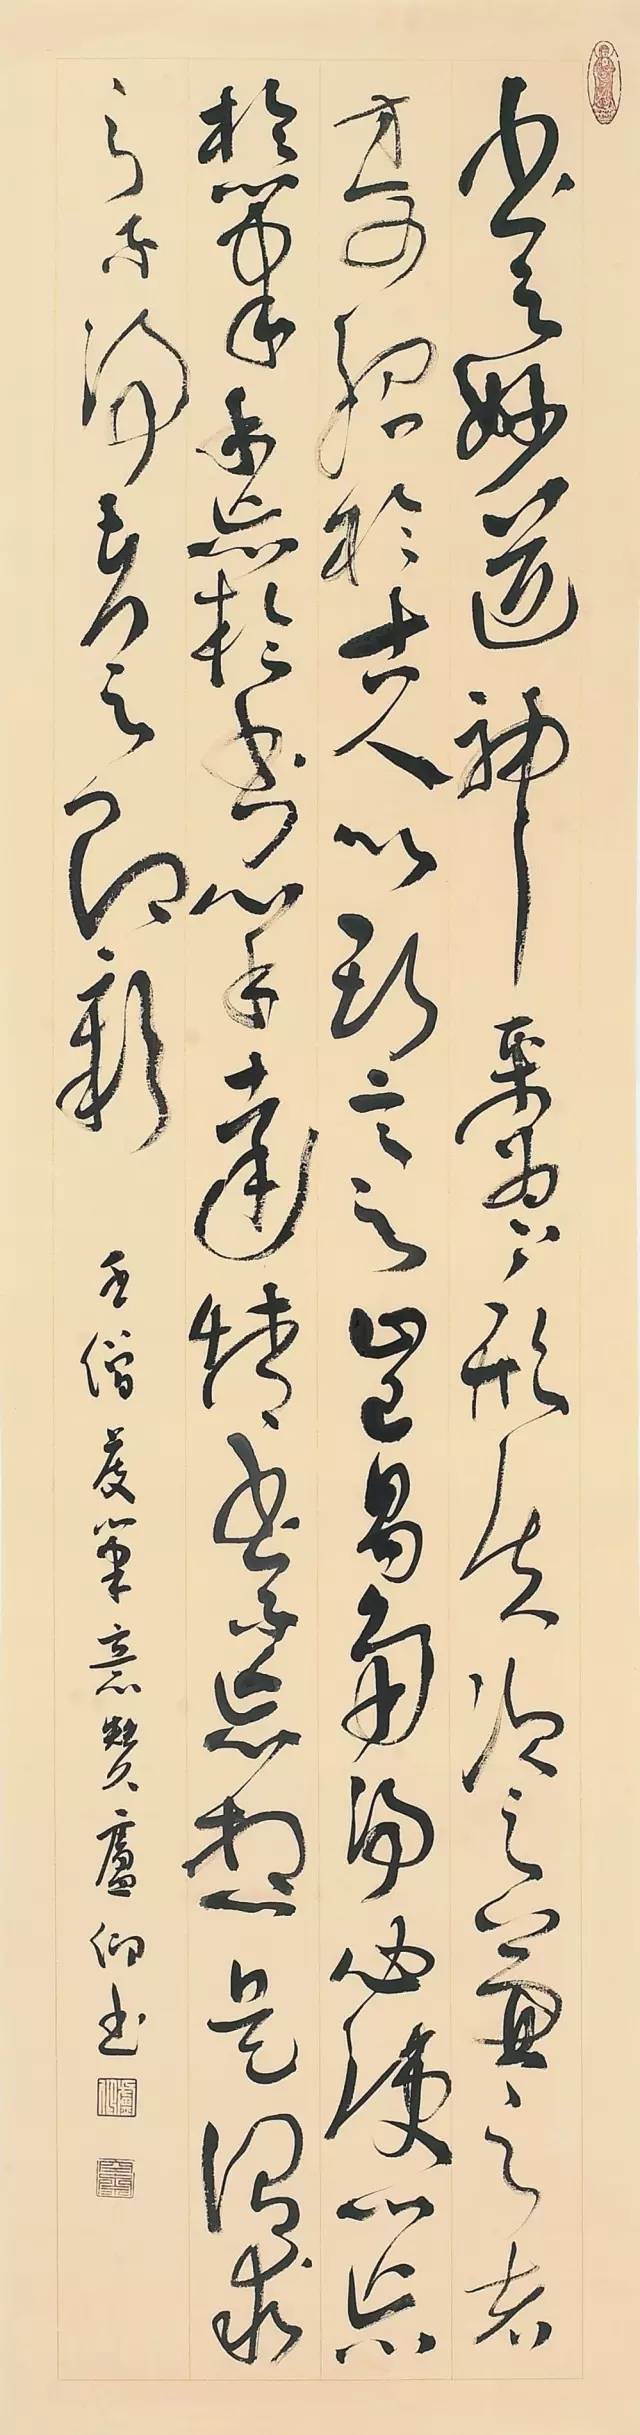 書之妙道神采為上形質次之兼之者
方可紹於古人以斯言之豈易多得必使心忘
於筆手忘於書心手達情書不忘想是謂求
之不得考之即彰
王僧虔筆意贊盧仰書